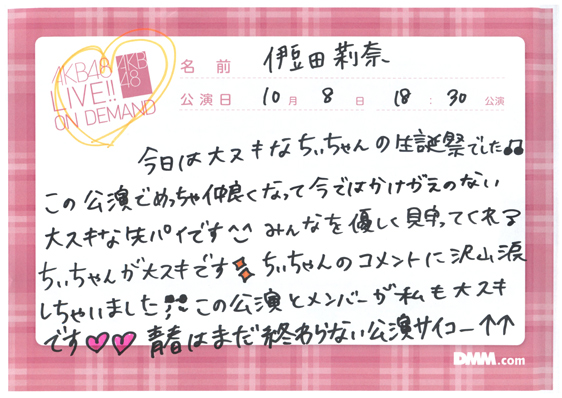 AKB48
LIVE!!
ON DEMAND
AKB
48
名前 伊豆田莉奈
公演日 10月 8日 18:30 公演
今日は大スキなちぃちゃんの生誕祭でした♫
この公演でめっちゃ仲良くなって今ではかけがえのない
大スキな先パイです^^ みんなを優しく見守ってくれる
ちぃちゃんが大スキです ちぃちゃんのコメントに沢山涙
しちゃいました!! この公演とメンバーが私も大スキ
です♡♡ 青春はまだ終わらない公演サイコー↑↑
DMM.com